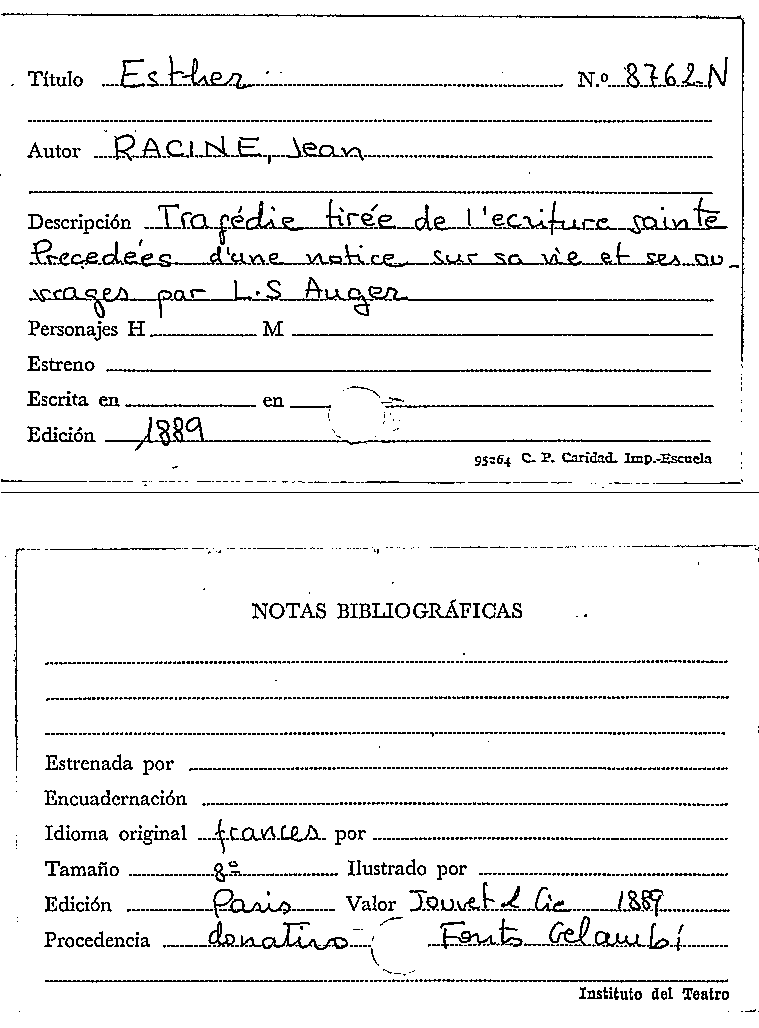 Título Esther N.º 8762-N
Autor RACINE, Jean
Descripción Tragédie tirée de l'ecriture sainte
Precedées d'une notice sur sa vie et ses ou-
vrages par L.S Auger
Personajes H M
Estreno
Escrita en en
Edición 1889
95264 C. P. Caridad. Imp.-Escuela
NOTAS BIBLIOGRÁFICAS
Estrenada por
Encuadernación
Idioma original frances por
Tamaño 8º Ilustrado por
Edición Paris Valor Jouvet & Cie 1889
Procedencia donativo Fonts
Instituto del Teatro